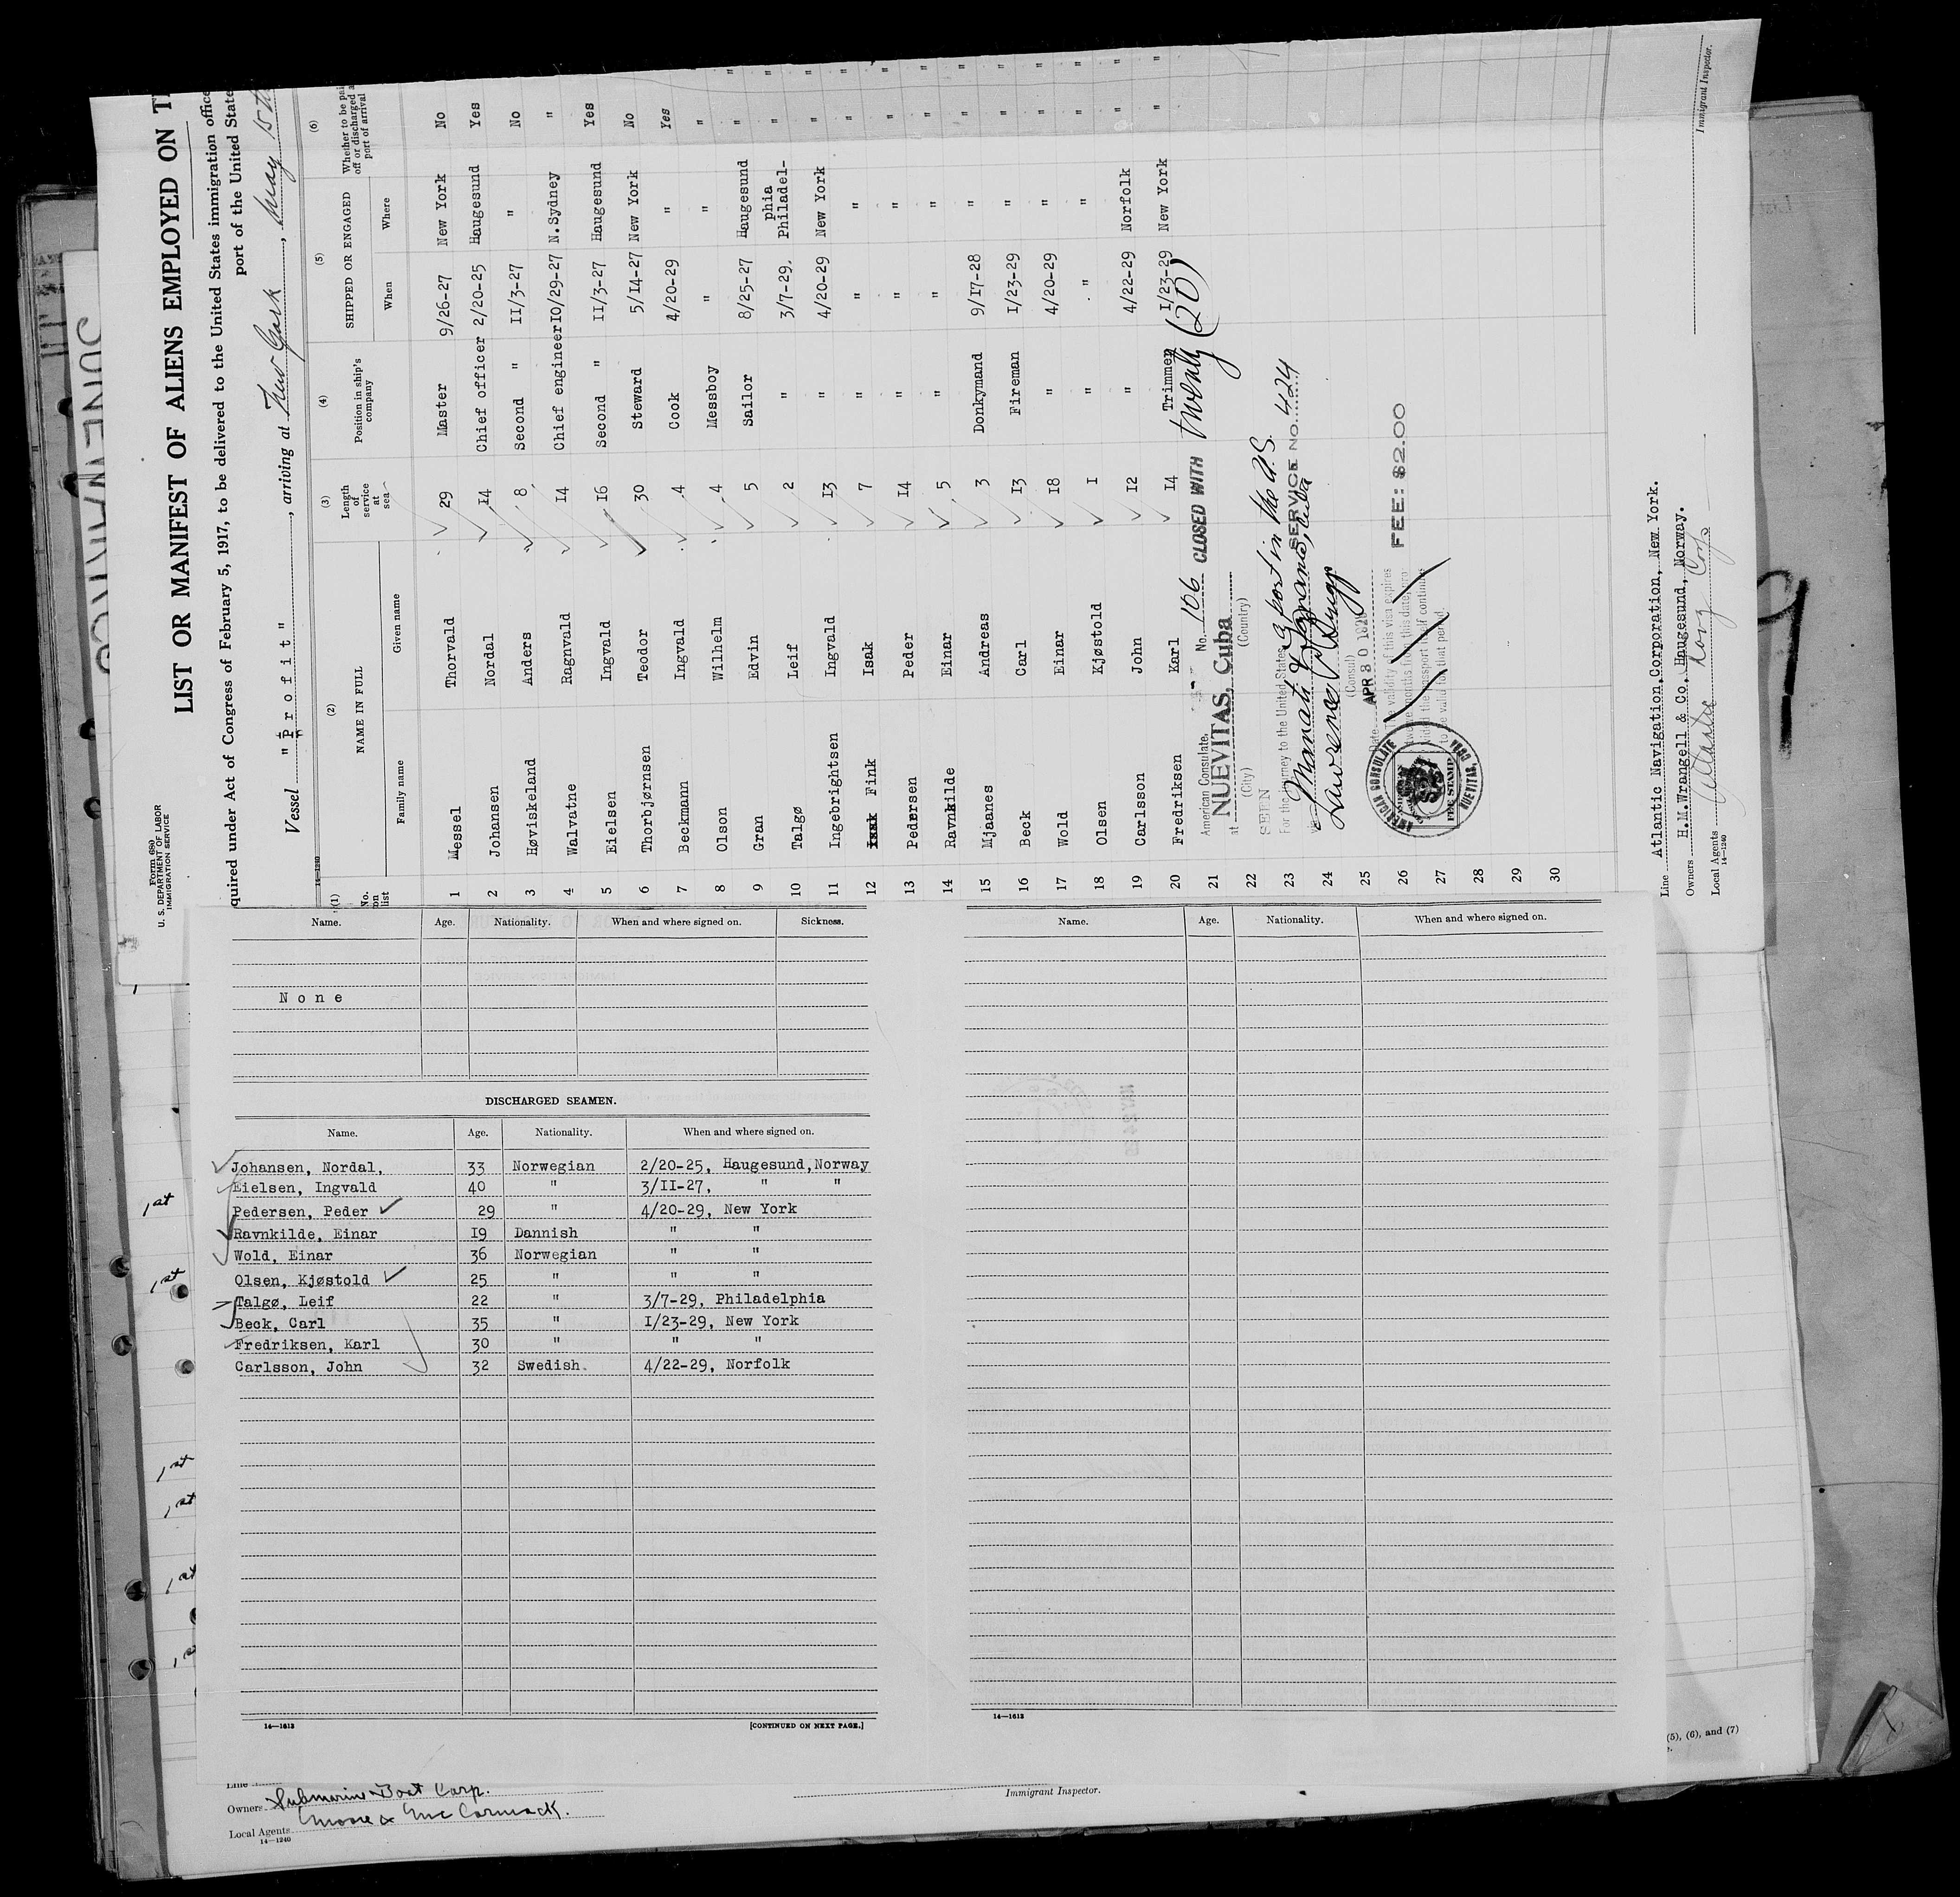 Form 680
U. S. DEPARTMENT OF LABOR
IMMIGRATION SERVICE
LIST OR MANIFEST OF ALIENS EMPLOYED ON
quired under Act of Congress of February 5, 1917, to be delivered to the United States immigration office
port of the United State
Vessel "Profit", arriving at New York, May 15th
14—1240
(1) (2) (3) (4) (5) (6)
No. on list NAME IN FULL Length of service at sea Position in ship's company SHIPPED OR ENGAGED Whether to be pai off or discharged a port of arrival
Family name Given name When Where
1 Messel Thorvald 29 Master 9/26-27 New York No
2 Johansen Nordal 14 Chief officer 2/20-25 Haugesund Yes "
3 Høviskeland Anders 8 Second " 11/3-27 " No
4 Walvatne Ragnvald 14 Chief engineer 10/29-27 N.Sydney "
5 Eielsen Ingvald 16 Second " 11/3-27 Haugesund Yes
6 Thorbjørnsen Teodor 30 Steward 5/14-27 New York No
7 Beckmann Ingvald 4 Cook 4/20-29 " Yes
8 Olson Wilhelm 4 Messboy " " " "
9 Gran Edvin 5 Sailor 8/25-27 Haugesund " "
10 Talgø Leif 2 " 3/7-29. Philadel-phia " "
11 Ingebrightsen Ingvald 13 " 4/20-29 New York " "
12 Fink Isak 7 " " " " "
13 Pedersen Peder 14 " " " " "
14 Ravnkilde Einar 5 " " " " "
15 Mjaanes Andreas 3 Donkymand 9/17-28 " " "
16 Beck Carl 13 Fireman 1/23-29 " " "
17 Wold Einar 18 " 4/20-29 " " "
18 Olsen Kjøstold 1 " " " " "
19 Carlsson John 12 " 4/22-29 Norfolk " "
20 Fredriksen Karl 14 Trimmer 1/23-29 New York " "
21
22
23
24
25
26
27
28
29
30
American Consulate, No. 106 CLOSED WITH twenty (20)
at NUEVITAS, Cuba
(City) (Country)
SEEN
For the journey to the United States a port in the U.S.
via Manati, Cuba SERVICE NO. 424
Lawrence
(Consul)
Date APR 30 1929
The validity of this visa expires
twelve months from this date, pro
vided the passport itself continues
to be valid for that period.
FEE: $2.00
AMERICAN CONSULATE NUEVITAS, CUBA
FEE STAMP
Line Atlantic Navigation Corporation, New York.
Owners H.M.Wrangell & Co. Haugesund, Norway.
Local Agents Atlantic Nav Corp
14—1240
Immigrant Inspector.
Name. Age. Nationality. When and where signed on. Sickness.
None
DISCHARGED SEAMEN.
Name. Age. Nationality. When and where signed on.
Johansen, Nordal, 33 Norwegian 2/20-25, Haugesund,Norway
Eielsen, Ingvald 40 " 3/11-27, " "
Pedersen, Peder 29 " 4/20-29, New York
Ravnkilde, Einar 19 Dannish " "
Wold, Einar 36 Norwegian " "
Olsen, Kjøstold 25 " " "
Talgø, Leif 22 " 3/7-29, Philadelphia
Beck, Carl 35 " 1/23-29, New York
Fredriksen, Karl 30 " " "
Carlsson, John 32 Swedish. 4/22-29, Norfolk
14—1613 [CONTINUED ON NEXT PAGE.]
Name. Age. Nationality. When and where signed on.
14—1613
1st
1st
1st
1st
1st
(5), (6), and (7)
Line
Owners Submarine Boat Corp.
Local Agents Moore & McCormack.
14—1240
Immigrant Inspector.